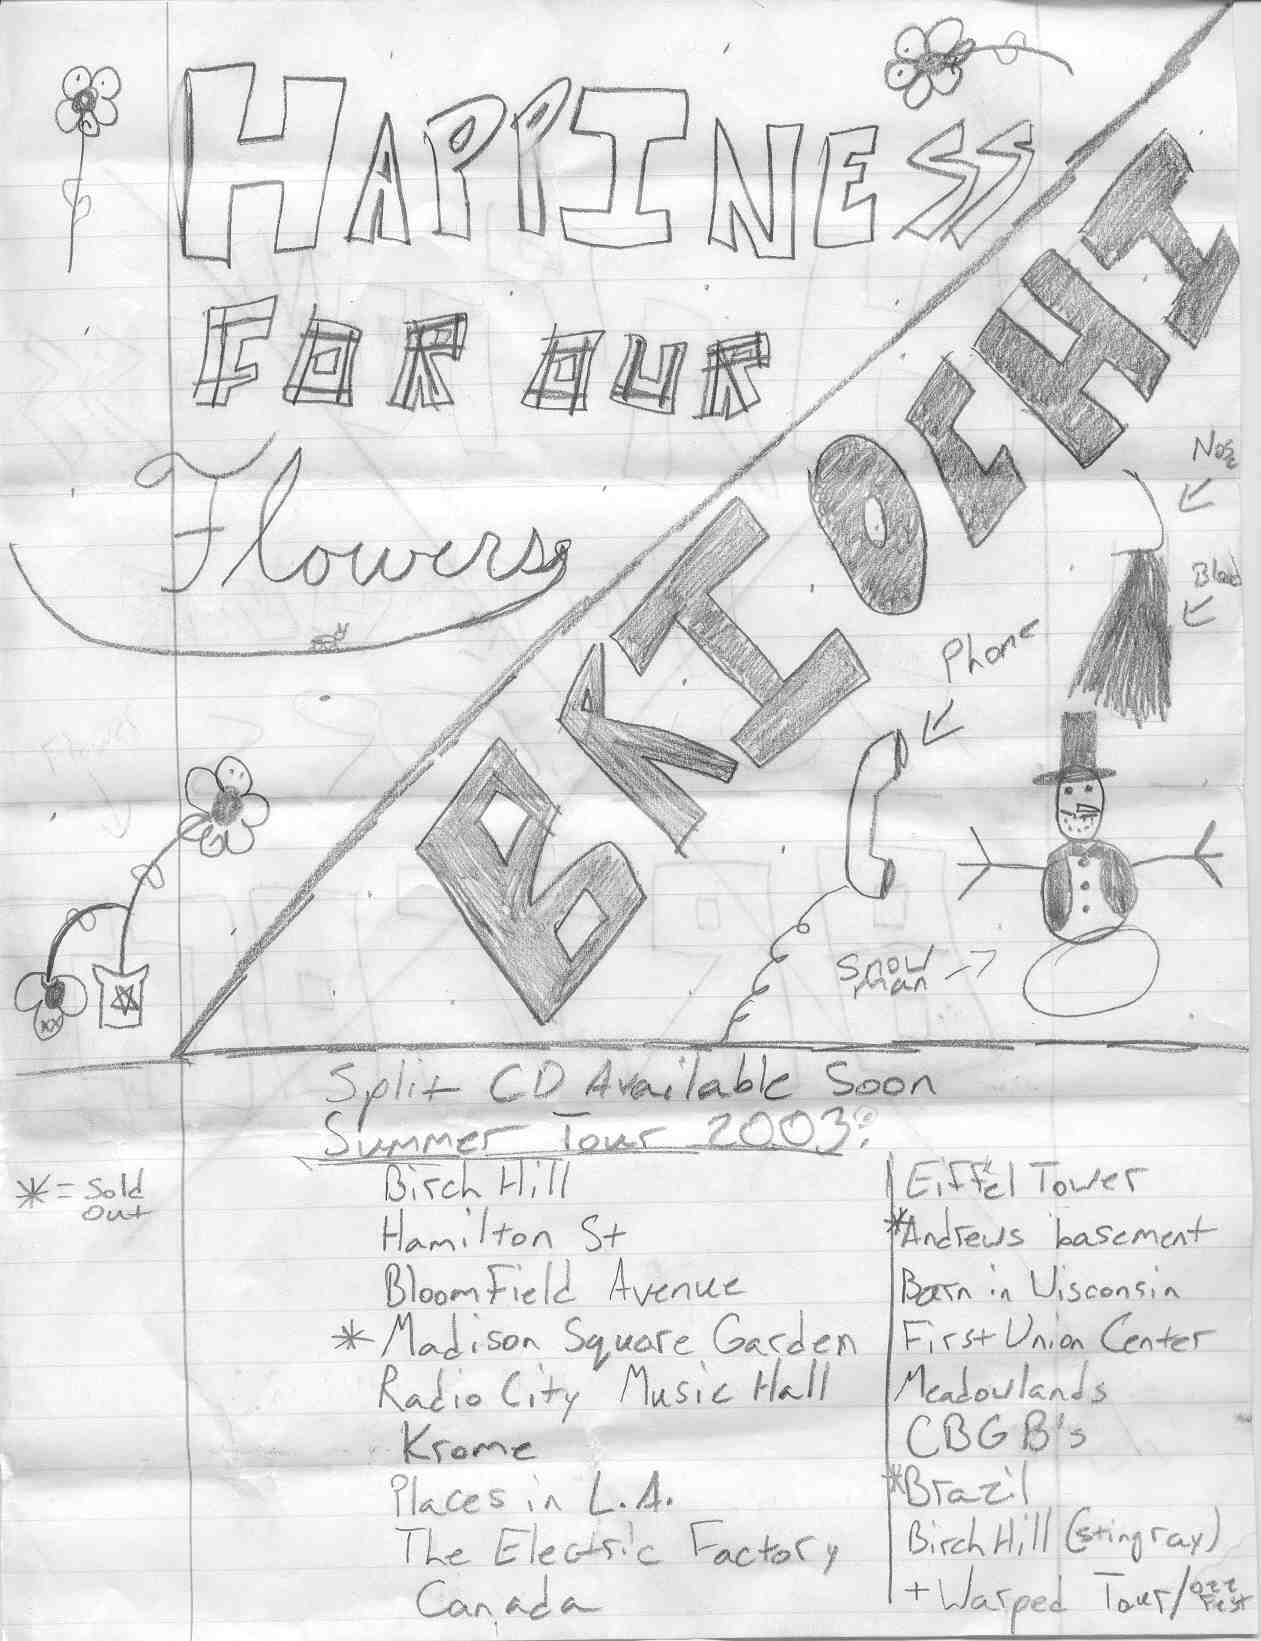 HAPPINESS
FOR OUR
Flowers
BKIOCHI
Nose
Blood
Phone
Snow
man
Split CD Available Soon
Summer Tour 2003:
* = Sold
out
Birch Hill
Hamilton St
Bloomfield Avenue
* Madison Square Garden
Radio City Music Hall
Krome
Places in L.A.
The Electric Factory
Canada
Eiffel Tower
*Andrews basement
Barn in Wisconsin
First Union Center
Meadowlands
CBGB's
*Brazil
Birch Hill (stingray)
+ Warped Tour/Ozz
Fest